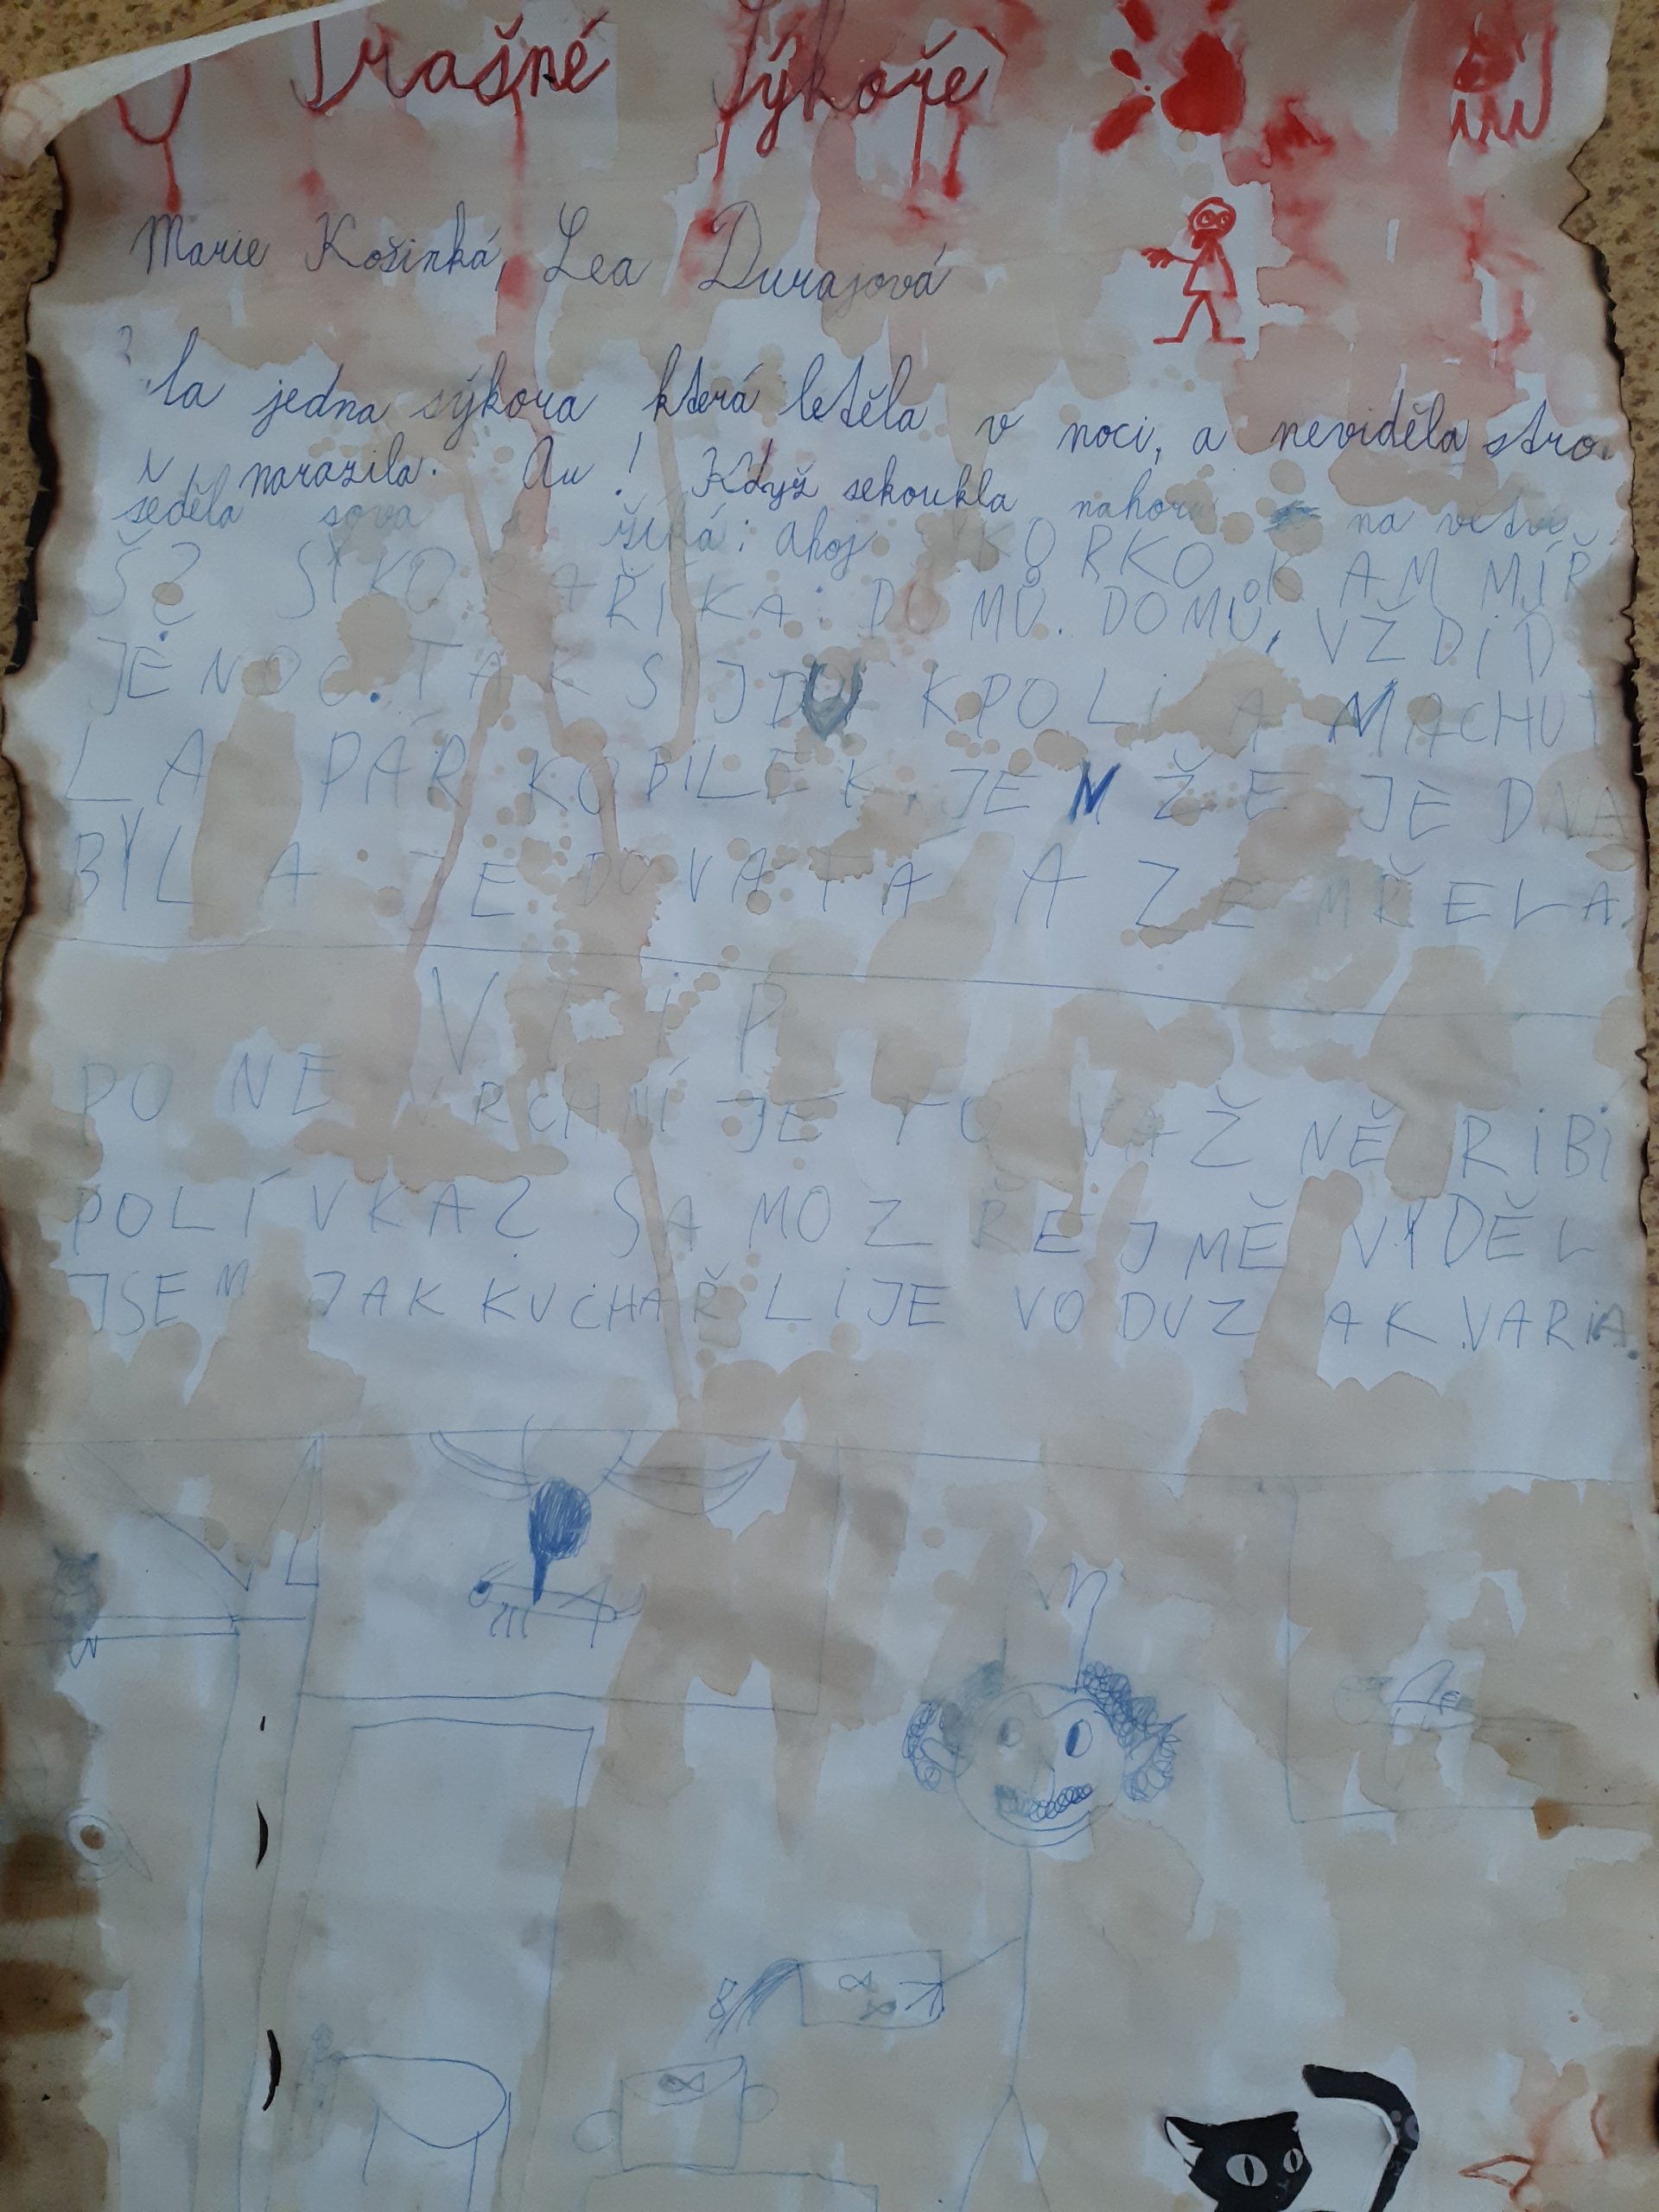 O Strašné Sýkoře
Marie Košinká, Lea Durajová
la jedna sýkora která letěla v noci, a neviděla stro
narazila. Au! Když sekoukla nahoru na větvi
seděla sova říká: ahoj SÍKORKO KAM MÍŘ
Š? SÍKORA ŘÍKÁ: DOMŮ. DOMŮ, VŽDID
JE NOC. TAK S JDU K POLI A MACHUT
LA PÁR KOBILEK JENŽE JEDNA
BYLA JEDOVATA A ZEMŘELA.
VTIP
PONE VRCHNÍ JE TO VAŽNĚ RIBI
POLÍVKA? SAMOZŘEJMĚ VYDĚL
JSEM JAK KUCHAŘ LIJE VODU Z AKVARIA.